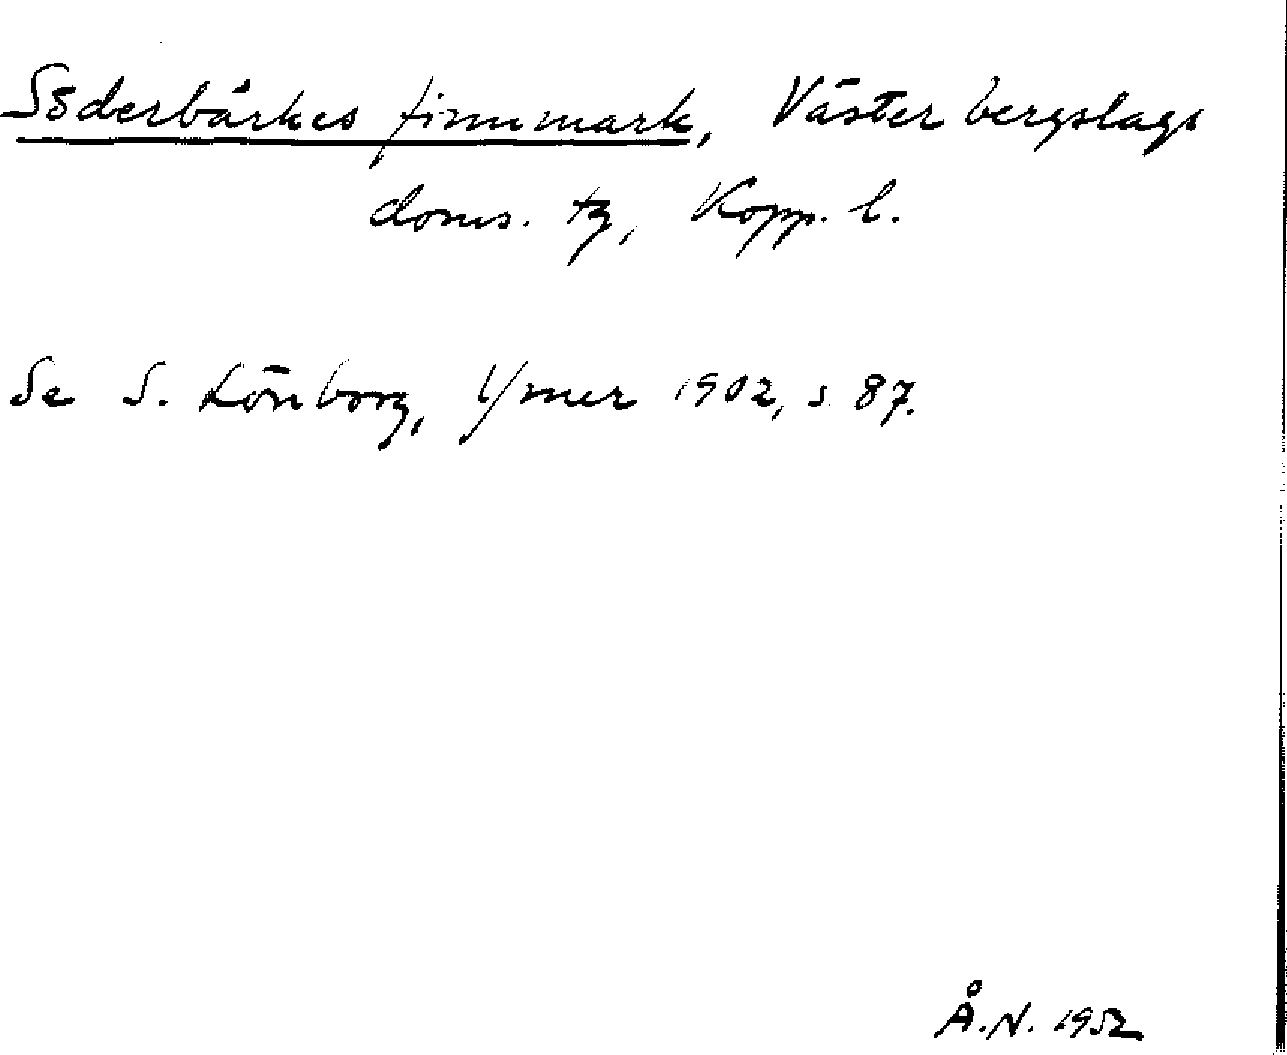 Söderbärkes finnmark, Västerbergslags
doms. tg, Kopp. l.
Se S. Lönborg, Ymer 1902, s. 87.
Å.N. 1952